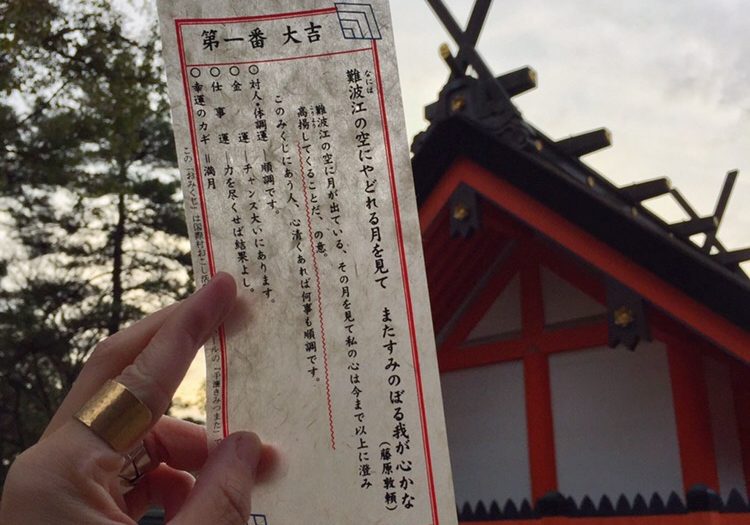 第一番 大吉
難波江の空にやどれる月を見て またすみのぼる我が心かな
なには
(藤原敦頼)
難波江の空に月が出ている、その月を見て私の心は今まで以上に澄み
高揚してくることだ、の意。
このみくじにあう人、心清くあれば何事も順調です。
○対人・体調運=順調です。
○金運=チャンス大いにあります。
○仕事運=力を尽くせば結果よし。
○幸運のカギ=満月
この「おみくじ」は国際村おこし
の『手漉きみつまた』